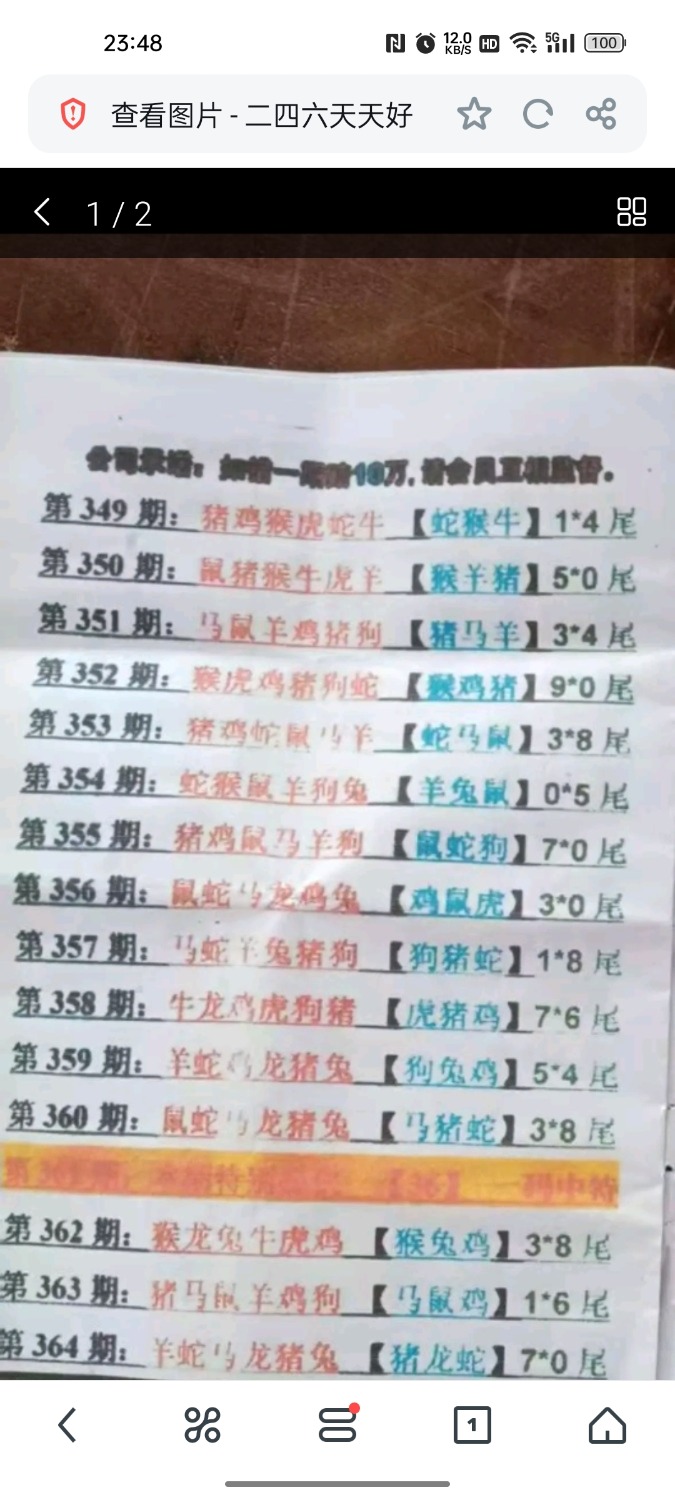 23:48 12.0 KB/S HD 5G 100
查看图片 - 二四六天天好
1 / 2
公司承诺：如错一期赔10万,请会员互相监督。
第 349 期：猪鸡猴虎蛇牛【蛇猴牛】1*4 尾
第 350 期：鼠猪猴牛虎羊【猴羊猪】5*0 尾
第 351 期：马鼠羊鸡猪狗【猪马羊】3*4 尾
第 352 期：猴虎鸡猪狗蛇【猴鸡猪】9*0 尾
第 353 期：猪鸡蛇鼠马羊【蛇马鼠】3*8 尾
第 354 期：蛇猴鼠羊狗兔【羊兔鼠】0*5 尾
第 355 期：猪鸡鼠马羊狗【鼠蛇狗】7*0 尾
第 356 期：鼠蛇马龙鸡兔【鸡鼠虎】3*0 尾
第 357 期：马蛇羊兔猪狗【狗猪蛇】1*8 尾
第 358 期：牛龙鸡虎狗猪【虎猪鸡】7*6 尾
第 359 期：羊蛇鸡龙猪兔【狗兔鸡】5*4 尾
第 360 期：鼠蛇马龙猪兔【马猪蛇】3*8 尾
第 361 期：特别【36】一码中特
第 362 期：猴龙兔牛虎鸡【猴兔鸡】3*8 尾
第 363 期：猪马鼠羊鸡狗【马鼠鸡】1*6 尾
第 364 期：羊蛇马龙猪兔【猪龙蛇】7*0 尾
1